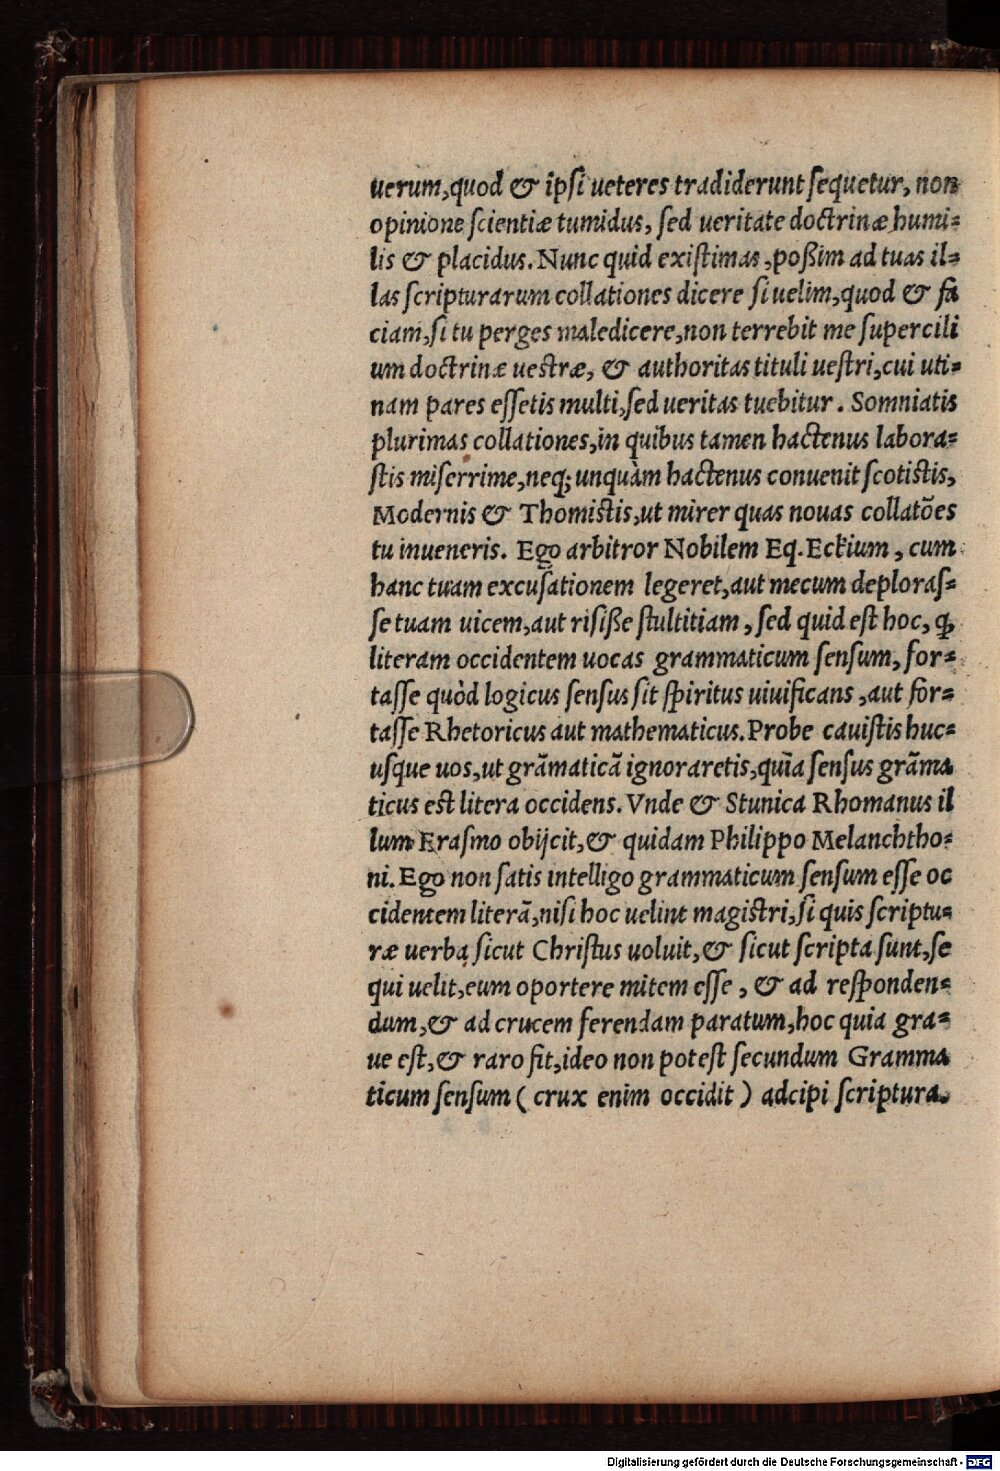 uerum,quod & ipsi ueteres tradiderunt sequetur, non
opinione scientiæ tumidus, sed ueritate doctrinæ humi-
lis & placidus. Nunc quid existimas ,poßim ad tuas il-
las scripturarum collationes dicere si uelim,quod & fa
ciam,si tu perges maledicere,non terrebit me supercili
um doctrinæ uestræ, & authoritas tituli uestri,cui uti-
nam pares essetis multi,sed ueritas tuebitur. Somniatis
plurimas collationes,in quibus tamen hactenus labora-
stis miserrime,neq; unquàm hactenus conuenit scotistis,
Modernis & Thomistis,ut mirer quas nouas collatões
tu inueneris. Ego arbitror Nobilem Eq. Eckium, cum
hanc tuam excusationem legeret,aut mecum deploras-
se tuam uicem,aut risiße stultitiam, sed quid est hoc, ꝙ
literam occidentem uocas grammaticum sensum, for-
tasse quòd logicus sensus sit spiritus uiuificans ,aut for-
tasse Rhetoricus aut mathematicus. Probe cauistis huc-
usque uos,ut grãmaticã ignoraretis,quĩa sensus grãma
ticus est litera occidens. Vnde & Stunica Rhomanus il
lum Erasmo obijcit,& quidam Philippo Melanchtho-
ni. Ego non satis intelligo grammaticum sensum esse oc
cidentem literã,nisi hoc uelint magistri,si quis scriptu-
ræ uerba sicut Christus uoluit,& sicut scripta sunt,se
qui uelit,eum oportere mitem esse, & ad responden-
dum,& ad crucem ferendam paratum,hoc quia gra-
ue est,& raro fit,ideo non potest secundum Gramma
ticum sensum ( crux enim occidit ) adcipi scriptura.
Digitalisierung gefördert durch die Deutsche Forschungsgemeinschaft - DFG